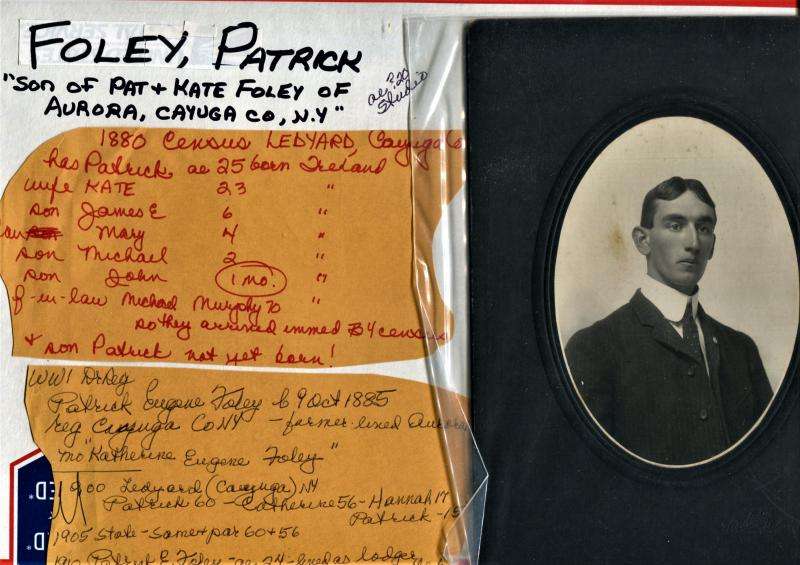 FOLEY, PATRICK
"SON OF PAT + KATE FOLEY OF
AURORA, CAYUGA CO, N.Y"
ae ? 20
Studio
1880 Census LEDYARD, Cayuga Co
has Patrick ae 25 born Ireland
wife KATE 23 "
son James E 6 "
Mary 4 "
son Michael 2 "
son John 1 mo. "
f-in-law Michael Murphy 70 "
so they arrived immed B4 census
+ son Patrick not yet born!
WW1 D Reg
Patrick Eugene Foley b 9 Oct 1885
reg Cayuga Co NY - farmer - lived Aurora
"mo Katherine Eugene Foley"
1900 Ledyard (Cayuga) NY
Patrick 60 - Catherine 56 - Hannah 17
Patrick - 15
1905 State - same + par 60 + 56
1910 Patrick E Foley - ae 24 - lived as lodger